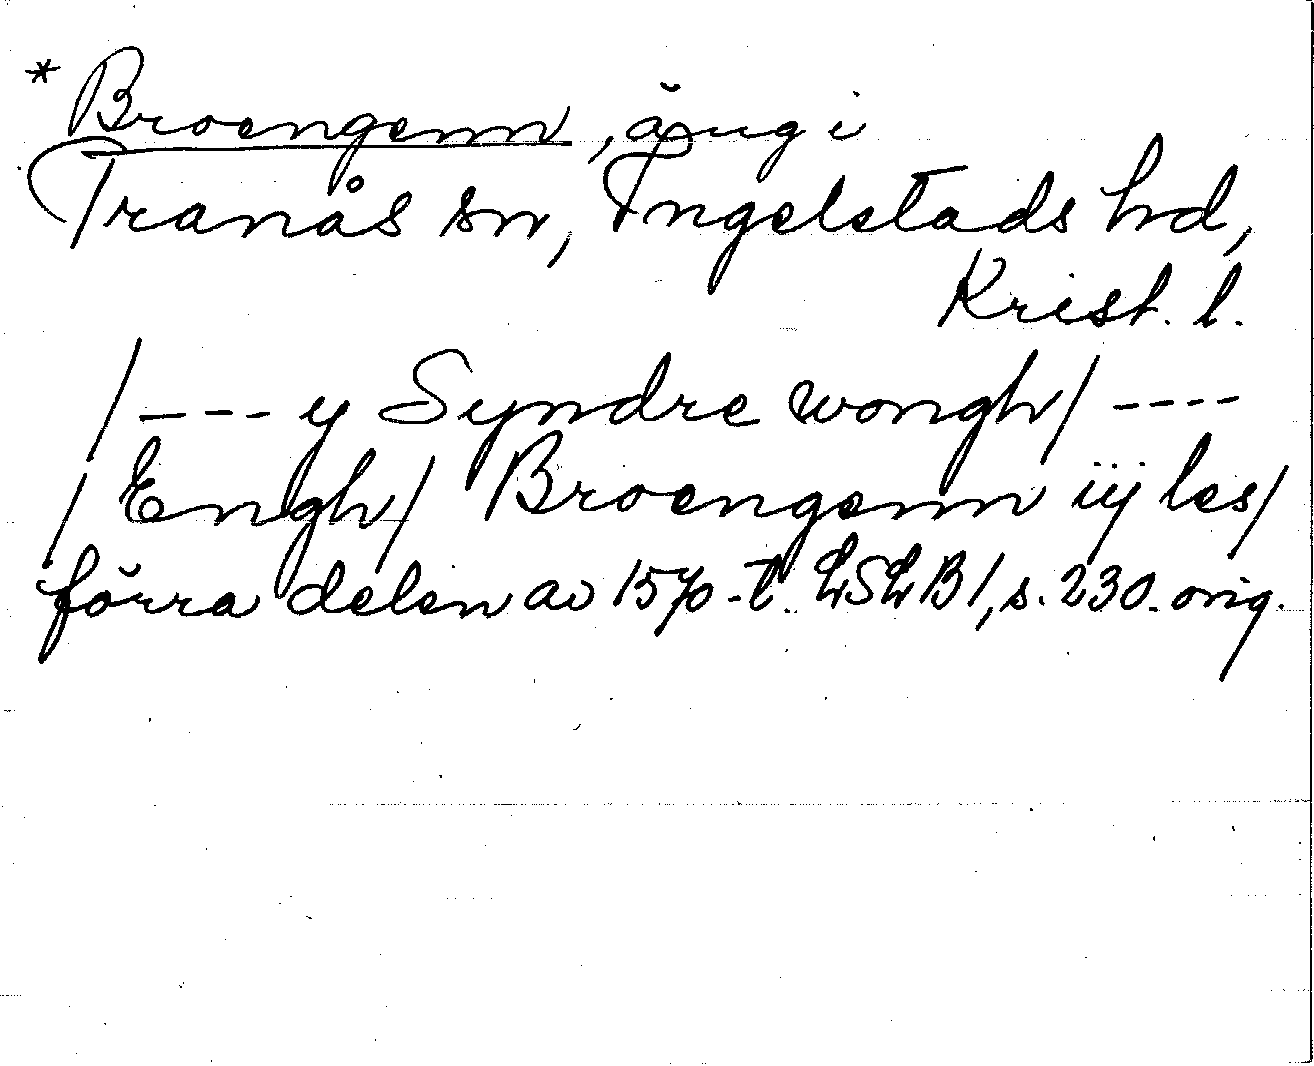 * Broengenn, äng i
Tranås sn, Ingelstads hd,
Krist. l.
/---- y Syndre wongh/ ----
/Engh/ Broengenn iij les/
förra delen av 1570-t. LSLB1, s. 230. orig.